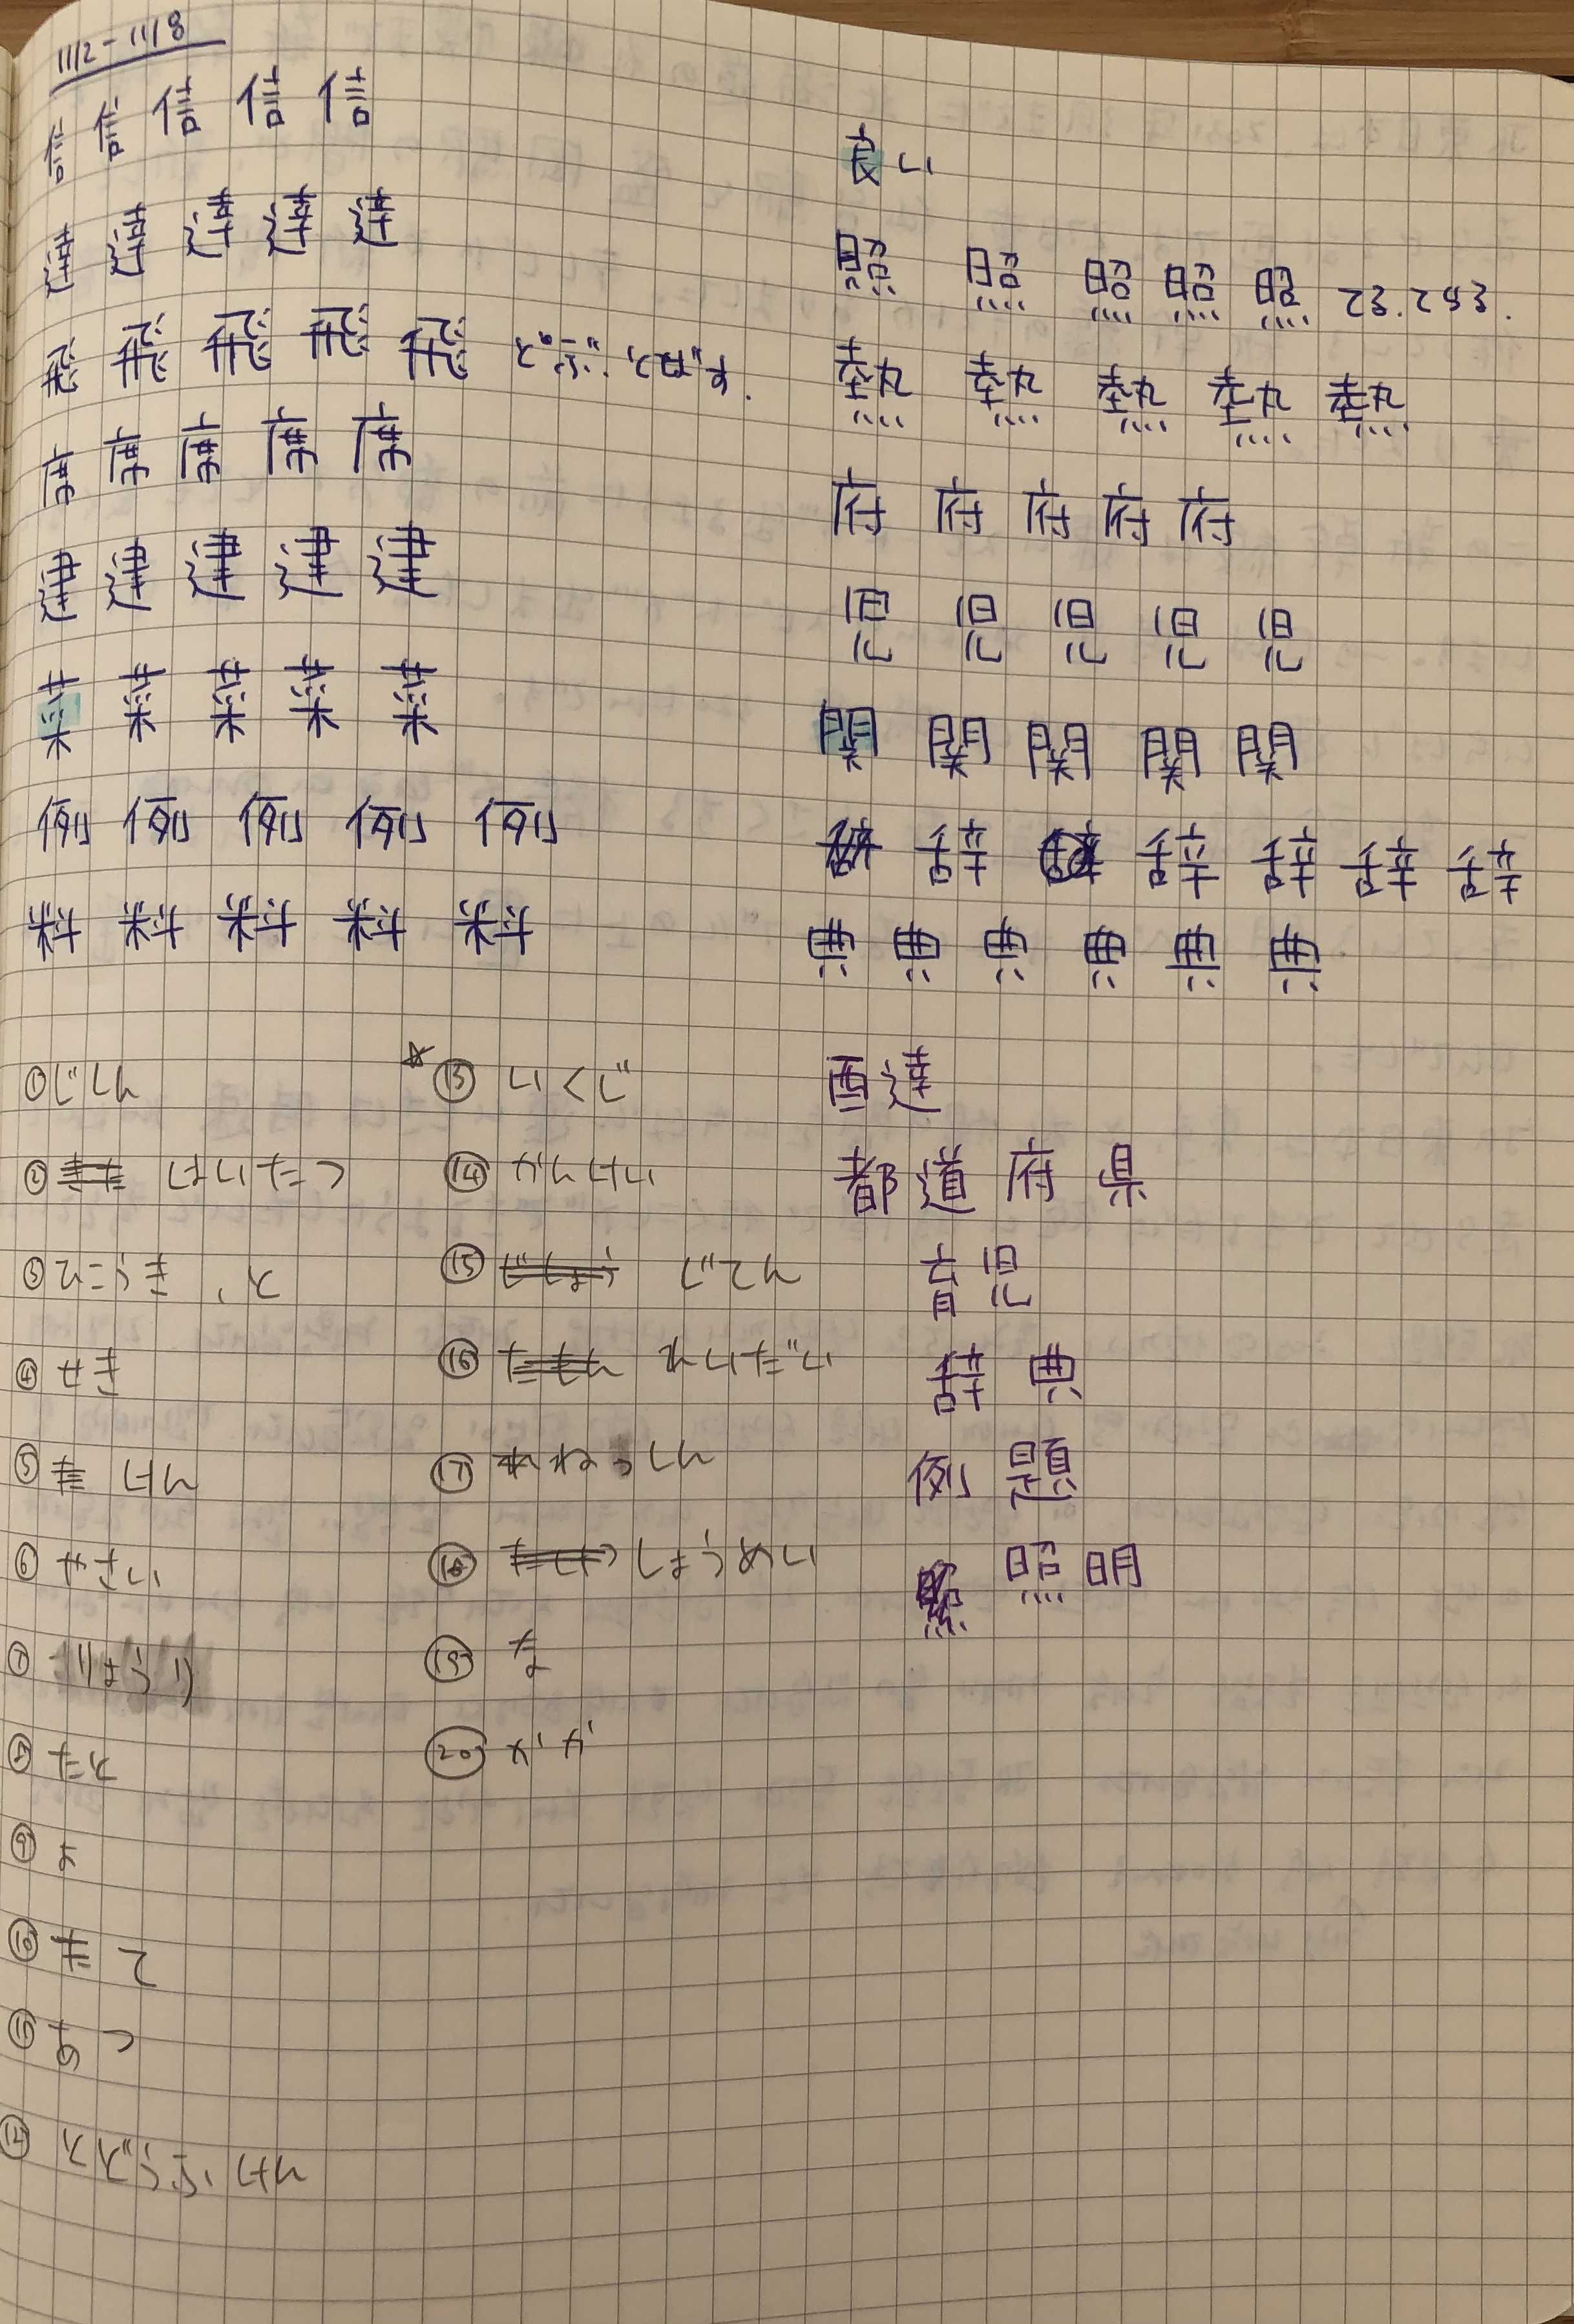 11/2-11/8
信 信 信 信 信
達 達 達 達 達
飛 飛 飛 飛 飛 とぶ、とばす.
席 席 席 席 席
建 建 建 建 建
菜 菜 菜 菜 菜
例 例 例 例 例
料 料 料 料 料
良い
照 照 照 照 照 てる.てらす.
熱 熱 熱 熱 熱
府 府 府 府 府
児 児 児 児 児
関 関 関 関 関
辞 辞 辞 辞 辞
典 典 典 典 典 典
① じしん
② はいたつ
③ ひこうき、と
④ せき
⑤ けん
⑥ やさい
⑦ りょうり
⑧ たと
⑨ よ
⑩ て
⑪ あつ
⑫ とどうふけん
☆ ⑬ いくじ
⑭ かんけい
⑮ じてん
⑯ れいだい
⑰ ねっしん
⑱ しょうめい
⑲ な
⑳ がか
配達
都道府県
育児
辞典
例題
照明